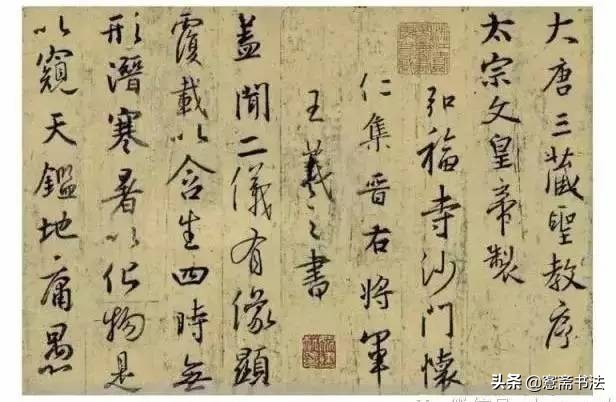 大唐三藏聖教序
太宗文皇帝製
弘福寺沙門懷
仁集晋右將軍
王羲之書
蓋聞二儀有像顯
覆載以含生四時無
形潛寒暑以化物是
以窺天鑑地庸愚
头条 @斋书法